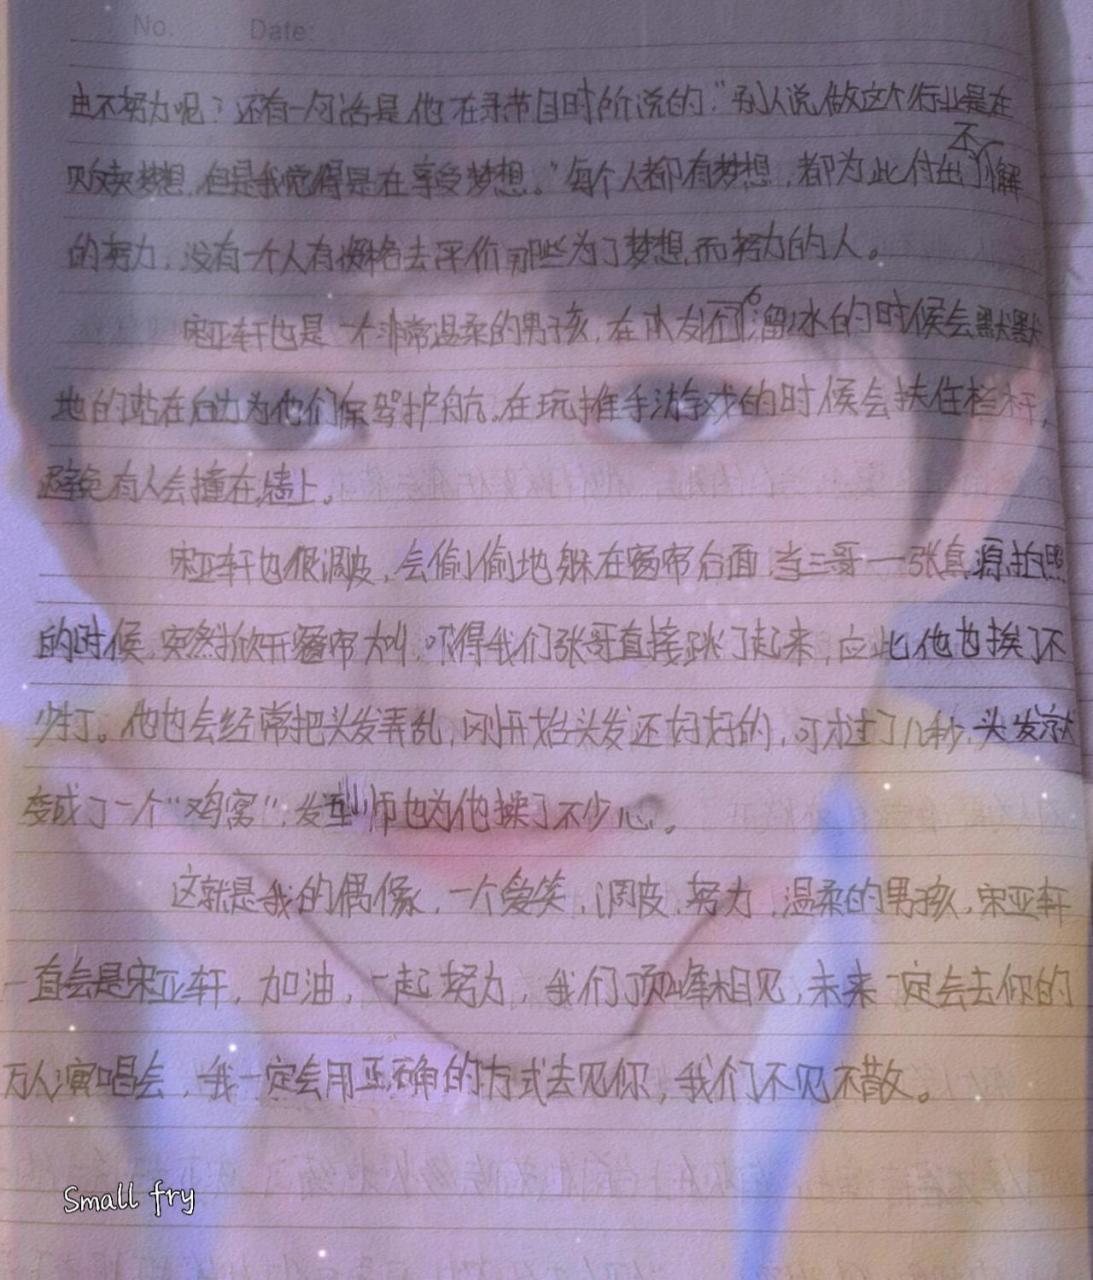 No. Date:
也不努力呢？还有一句话是他在录节目时所说的："别人说,做这个行业是在
贩卖梦想,但是我觉得是在享受梦想。"每个人都有梦想,都为此付出了不解
的努力,没有一个人有资格去评价那些为了梦想,而努力的人。
宋亚轩也是一个非常温柔的男孩,在队友们溜冰的时候会默默
地的站在后边为他们保驾护航,在玩推手游戏的时候会扶住栏杆,
避免有人会撞在墙上。
宋亚轩也很调皮,会偷偷地躲在窗帘后面,当三哥一张真源拍照
的时候,突然掀开窗帘大叫,吓得我们张哥直接跳了起来,应此他也挨了不
少打。他也会经常把头发弄乱,刚开始头发还好好的,可才过了几秒,头发就
变成了一个"鸡窝",发型师也为他操了不少心。
这就是我的偶像,一个爱笑,调皮,努力,温柔的男孩,宋亚轩
一直会是宋亚轩,加油,一起努力,我们顶峰相见,未来一定会去你的
万人演唱会,我一定会用正确的方式去见你,我们不见不散。
Small fry